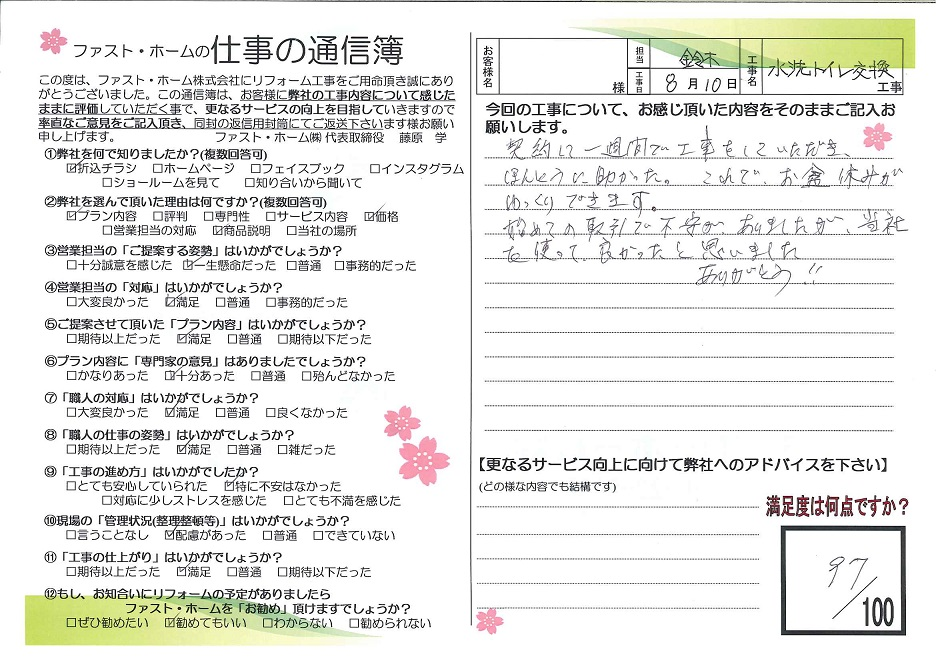 ファスト・ホームの仕事の通信簿
この度は、ファスト・ホーム株式会社にリフォーム工事をご用命頂き誠にあり
がとうございました。この通信簿は、お客様に弊社の工事内容について感じた
ままに評価していただく事で、更なるサービスの向上を目指していきますので
率直なご意見をご記入頂き、同封の返信用封筒にてご返送下さいます様お願い
申し上げます。 ファスト・ホーム㈱ 代表取締役 藤原 学
①弊社を何で知りましたか?(複数回答可)
☑折込チラシ □ホームページ □フェイスブック □インスタグラム
□ショールームを見て □知り合いから聞いて
②弊社を選んで頂いた理由は何ですか?(複数回答可)
☑プラン内容 □評判 □専門性 □サービス内容 ☑価格
□営業担当の対応 ☑商品説明 □当社の場所
③営業担当の「ご提案する姿勢」はいかがでしょうか?
□十分誠意を感じた ☑一生懸命だった □普通 □事務的だった
④営業担当の「対応」はいかがでしょうか?
□大変良かった ☑満足 □普通 □事務的だった
⑤ご提案させて頂いた「プラン内容」はいかがでしょうか?
□期待以上だった ☑満足 □普通 □期待以下だった
⑥プラン内容に「専門家の意見」はありましたでしょうか?
□かなりあった ☑十分あった □普通 □殆んどなかった
⑦「職人の対応」はいかがでしょうか?
□大変良かった ☑満足 □普通 □良くなかった
⑧「職人の仕事の姿勢」はいかがでしょうか?
□期待以上だった ☑満足 □普通 □雑だった
⑨「工事の進め方」はいかがでしたか?
□とても安心していられた ☑特に不安はなかった
□対応に少しストレスを感じた □とても不満を感じた
⑩現場の「管理状況(整理整頓等)」はいかがでしょうか?
□言うことなし ☑配慮があった □普通 □できていない
⑪「工事の仕上がり」はいかがでしょうか?
□期待以上だった ☑満足 □普通 □期待以下だった
⑫もし、お知合いにリフォームの予定がありましたら
ファスト・ホームを「お勧め」頂けますでしょうか?
□ぜひ勧めたい ☑勧めてもいい □わからない □勧められない
お客様名 様 担当 鈴木 工事日 8月10日 工事名 水洗トイレ交換 工事
今回の工事について、お感じ頂いた内容をそのままご記入お
願いします。
契約に一週間で工事をしていただき、
ほんとうに助かった。これで、お盆休みが
ゆっくりできます。
始めての取引で不安がありましたが、当社
を使って、良かったと思いました
ありがとう!!
【更なるサービス向上に向けて弊社へのアドバイスを下さい】
(どの様な内容でも結構です)
満足度は何点ですか?
97/100